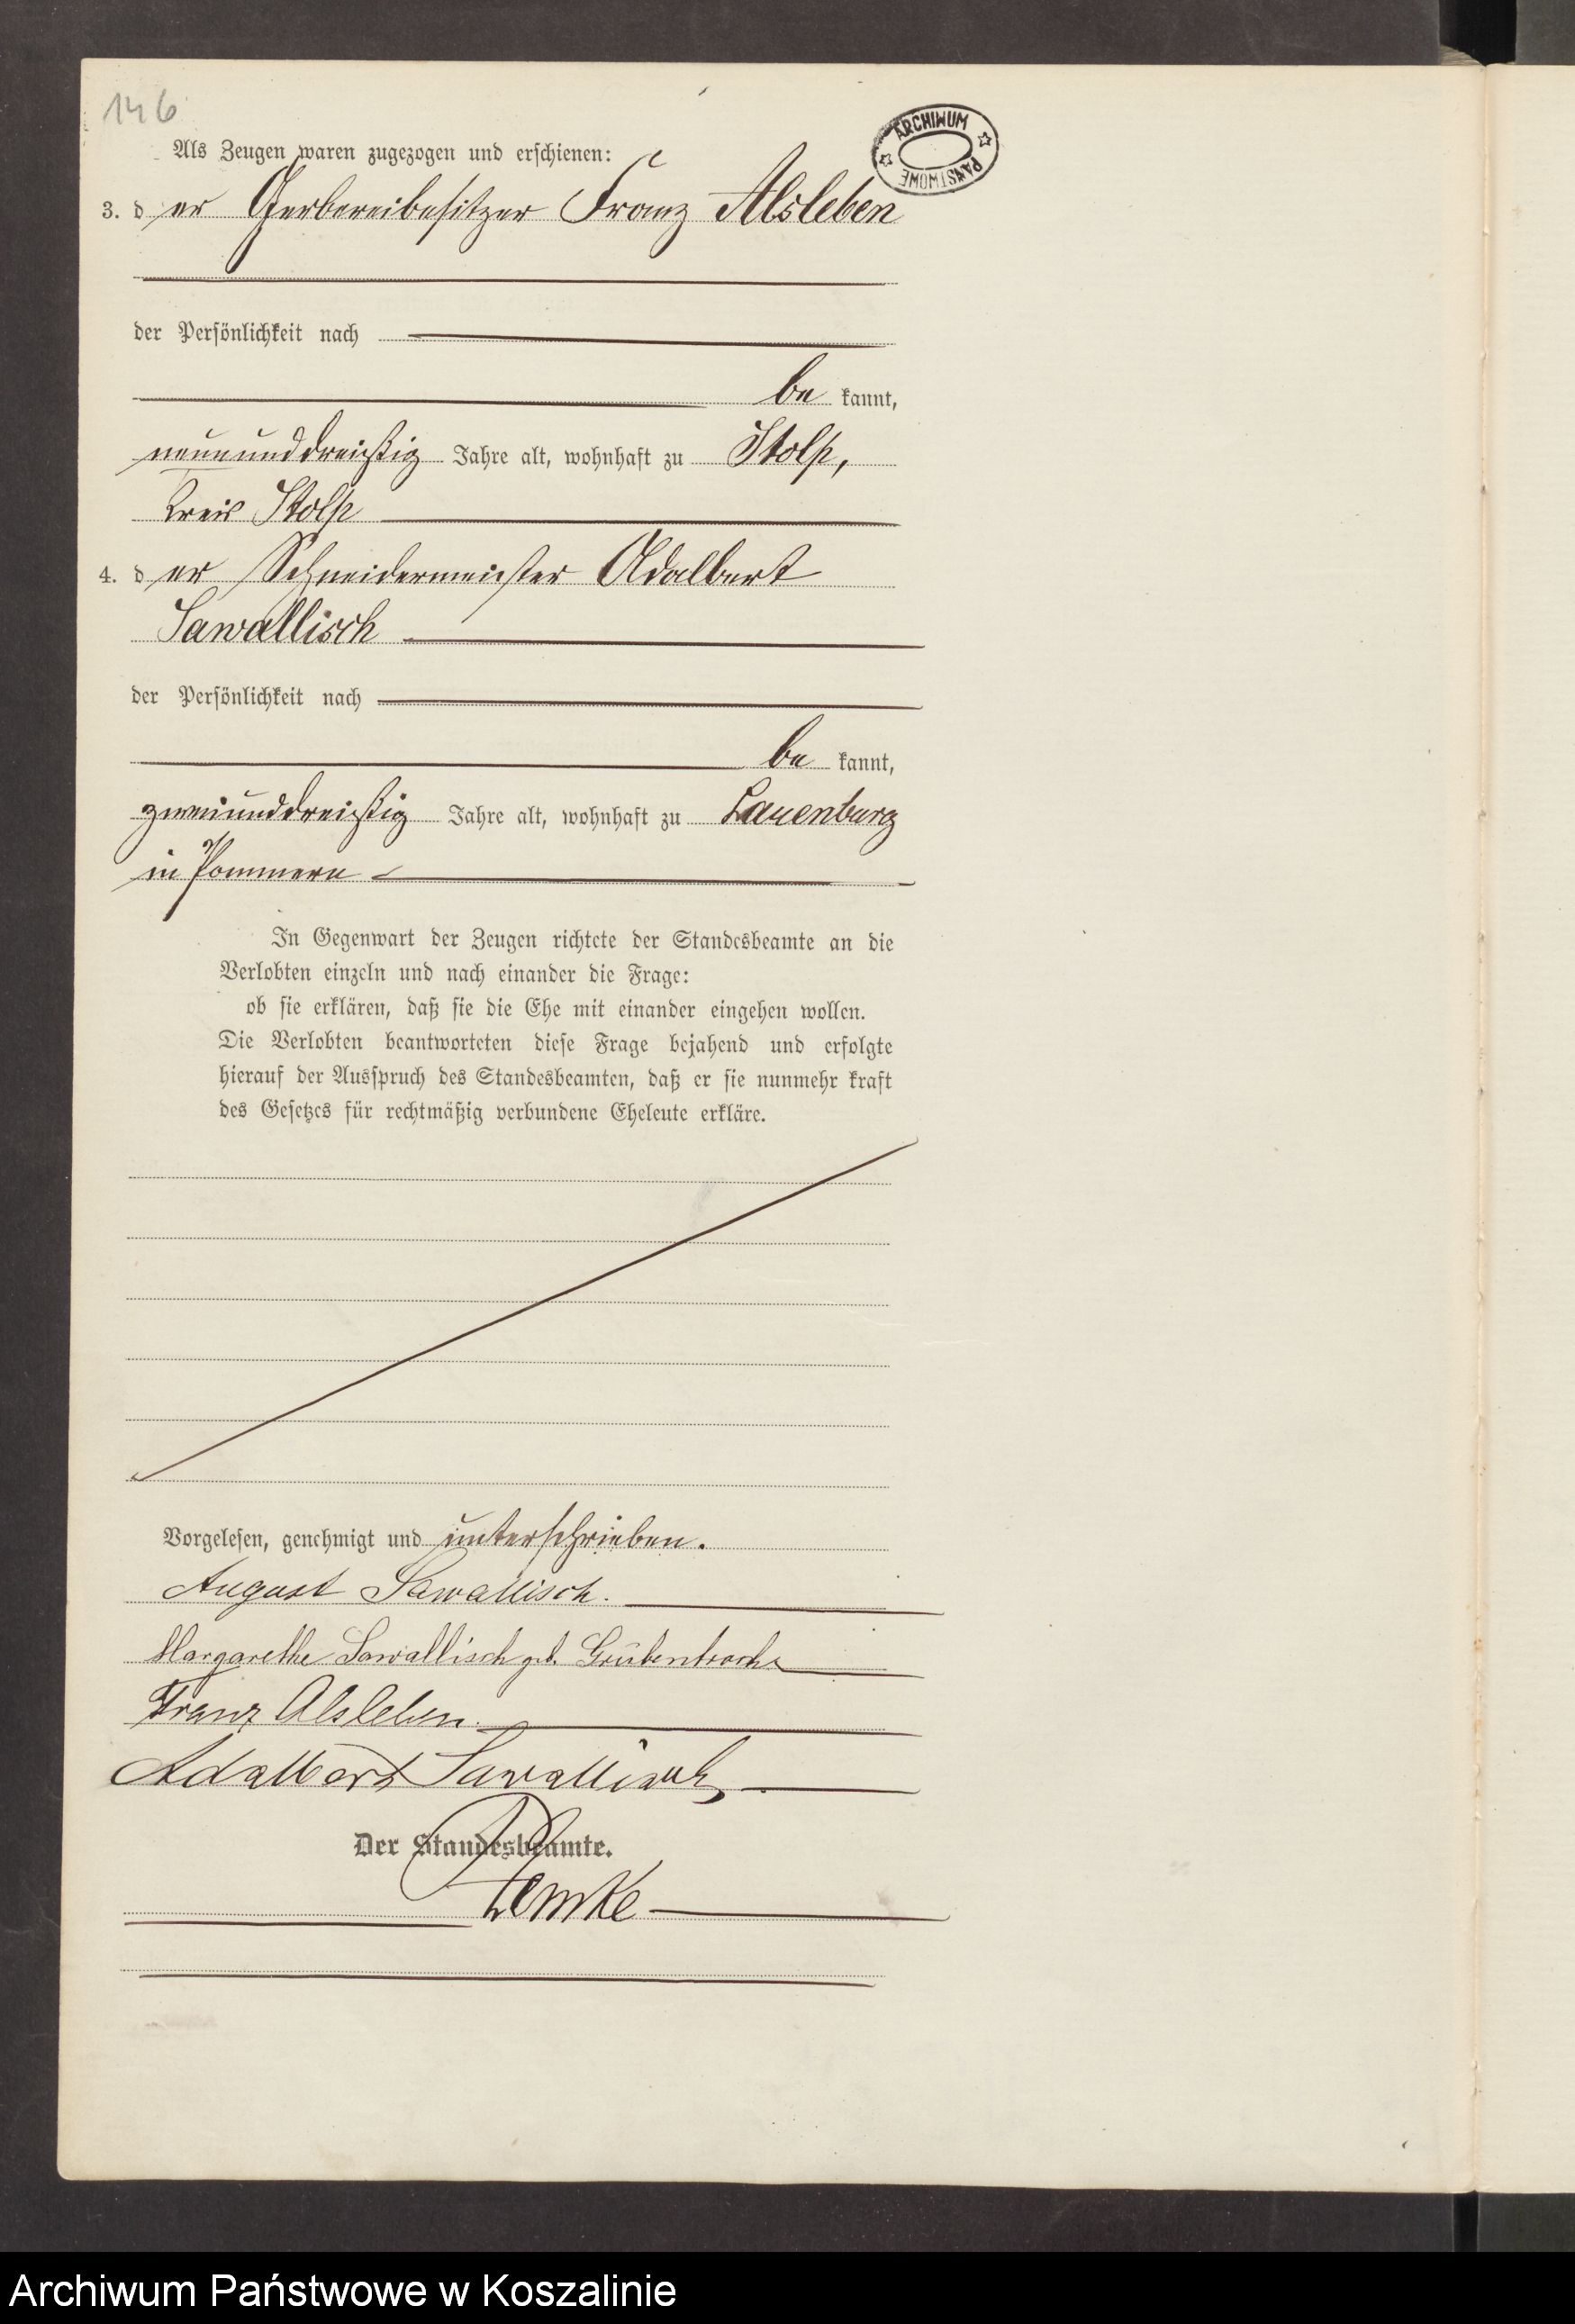 146
ARCHIWUM
PAŃSTWOWE
Als Zeugen waren zugezogen und erschienen:
3. d er Gerbereibesitzer Franz Alsleben
der Persönlichkeit nach
be kannt,
neununddreißig Jahre alt, wohnhaft zu Stolp,
Kreis Stolp
4. d er Schneidermeister Adalbert
Sawallisch
der Persönlichkeit nach
be kannt,
zweiunddreißig Jahre alt, wohnhaft zu Lauenburg
in Pommern
In Gegenwart der Zeugen richtete der Standesbeamte an die
Verlobten einzeln und nach einander die Frage:
ob sie erklären, daß sie die Ehe mit einander eingehen wollen.
Die Verlobten beantworteten diese Frage bejahend und erfolgte
hierauf der Ausspruch des Standesbeamten, daß er sie nunmehr kraft
des Gesetzes für rechtmäßig verbundene Eheleute erkläre.
Vorgelesen, genehmigt und unterschrieben.
August Sawallisch.
Margarethe Sawallisch geb.
Franz Alsleben.
Adalbert Sawallisch
Der Standesbeamte.
Lemke
Archiwum Państwowe w Koszalinie